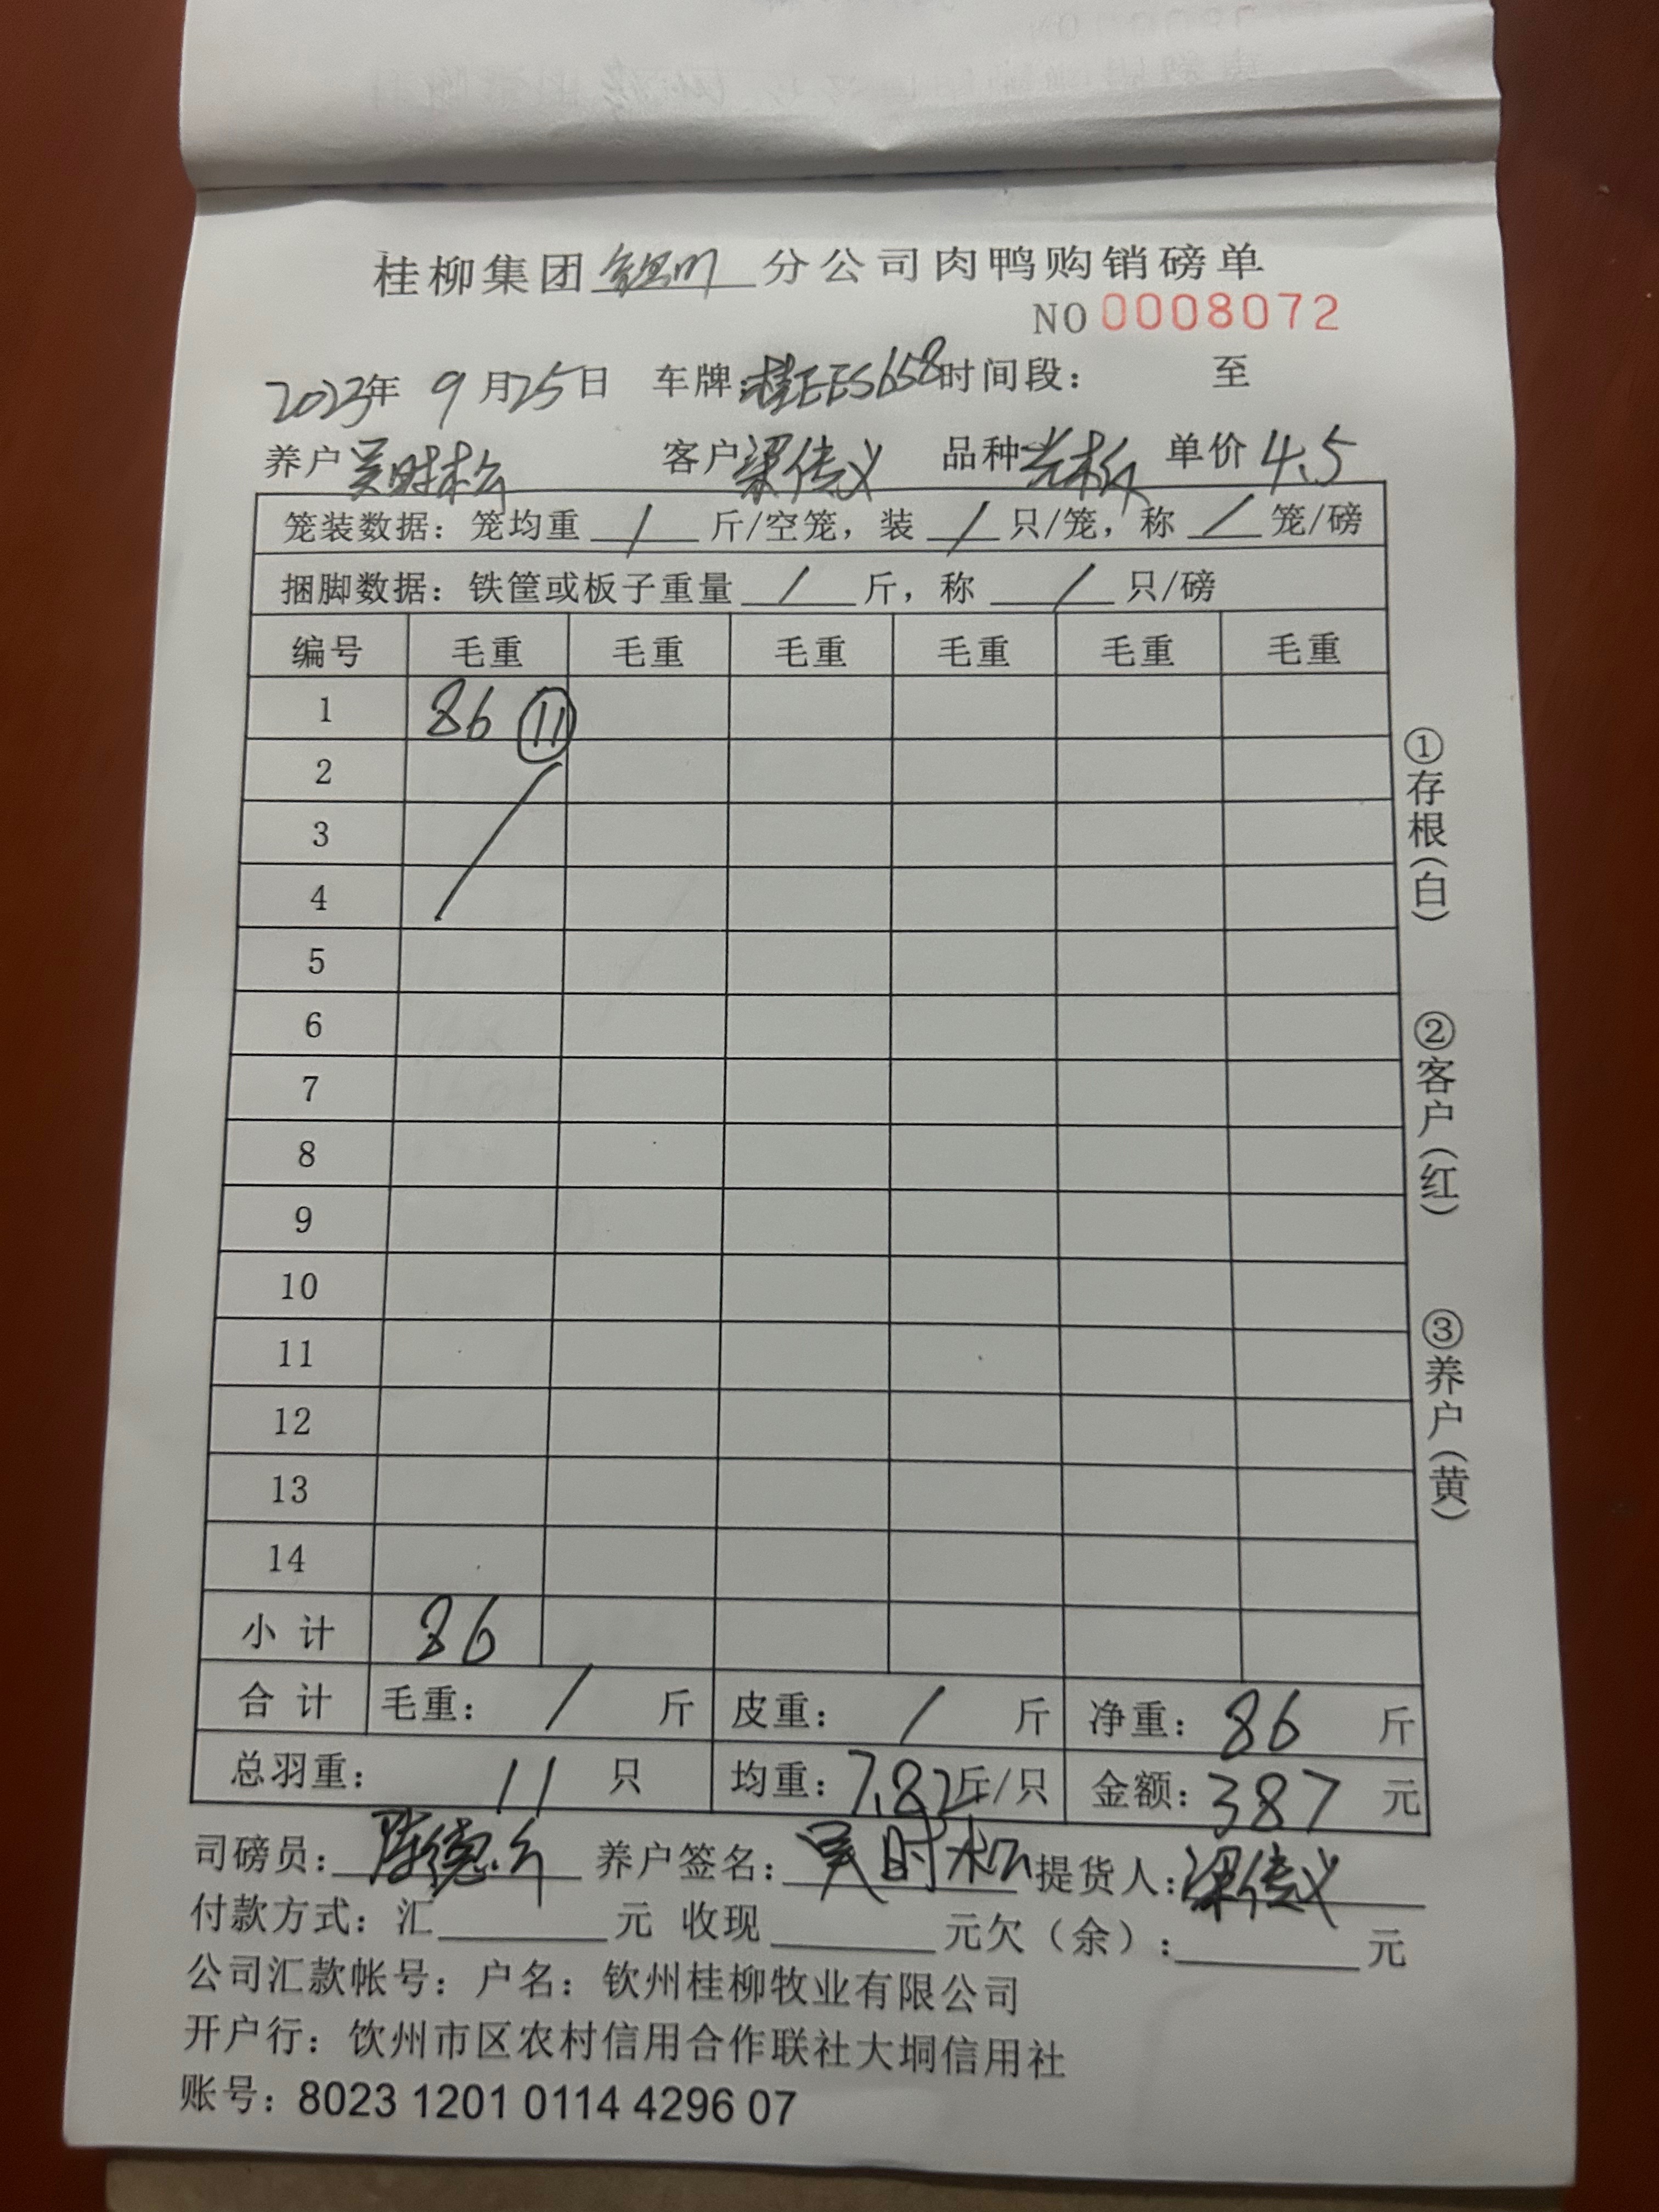 桂柳集团钦州分公司肉鸭购销磅单
NO 0008072
2023年 9月25日 车牌:桂EES658 时间段: 至
养户 吴时松 客户 梁传义 品种 单价 4.5
笼装数据: 笼均重 / 斤/空笼, 装 / 只/笼, 称 / 笼/磅
捆脚数据: 铁筐或板子重量 / 斤, 称 / 只/磅
编号 毛重 毛重 毛重 毛重 毛重 毛重
1 86 ⑪
2
3
4
5
6
7
8
9
10
11
12
13
14
小计 86
合计 毛重: / 斤 皮重: / 斤 净重: 86 斤
总羽重: 11 只 均重: 7.82斤/只 金额: 387 元
司磅员: 养户签名: 吴时松 提货人: 梁传义
付款方式: 汇 元 收现 元欠(余): 元
公司汇款帐号: 户名: 钦州桂柳牧业有限公司
开户行: 饮州市区农村信用合作联社大垌信用社
账号: 8023 1201 0114 4296 07
①存根(白)
②客户(红)
③养户(黄)